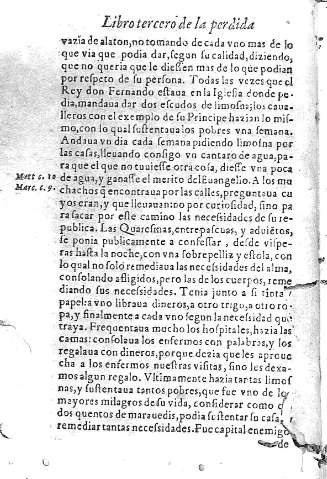 Libro tercero de la perdida
vazia de alaton, no tomando de cada vno mas de lo
que via que podia dar, segun su calidad, diziendo,
que no queria que le diessen mas de lo que podian
por respeto de su persona. Todas las vezes que el
Rey don Fernando estaua en la Iglesia donde pe-
dia, mandaua dar dos escudos de limosna; los caua-
lleros con el exemplo de su Principe hazian lo mis-
mo, con lo qual sustentaua los pobres vna semana.
Andaua vn dia cada semana pidiendo limosna por
las casas, lleuando consigo vn cantaro de agua, pa-
ra que el que no tuuiesse otra cosa, diesse vna poca
Matt c. 10 de agua, y ganasse el merito del Euangelio. A los mu
Marc. c. 9. chachos q̃ encontraua por las calles, preguntaua cu
yos eran, y que lleuauan no por curiosidad, sino pa
ra sacar por este camino las necessidades de su re-
publica. Las Quaresmas, entrepascuas, y aduiẽtos,
se ponia publicamente a confessar, desde vispe-
ras hasta la noche, con vna sobrepelliz y estola, con
lo qual no solo remediaua las necessidades del alma,
consolando afligidos, pero las de los cuerpos, reme
diando sus necessidades. Tenia junto a si tinta
papel: a vno libraua dineros, a otro trigo, a otro ro-
pa, y finalmente a cada vno segun la necessidad que
traya. Frequentaua mucho los hospitales, hazia las
camas: consolaua los enfermos con palabras, y los
regalaua con dineros, porque dezia que les aproue
cha a los enfermos nuestras visitas, sino les dexa-
mos algun regalo. Vltimamente hazia tantas limos
nas, y sustentaua tantos pobres, que fue vno de los
mayores milagros de su vida, considerar como
dos quentos de marauedis, podia sustentar su casa,
remediar tantas necessidades. Fue capital enemigo
de